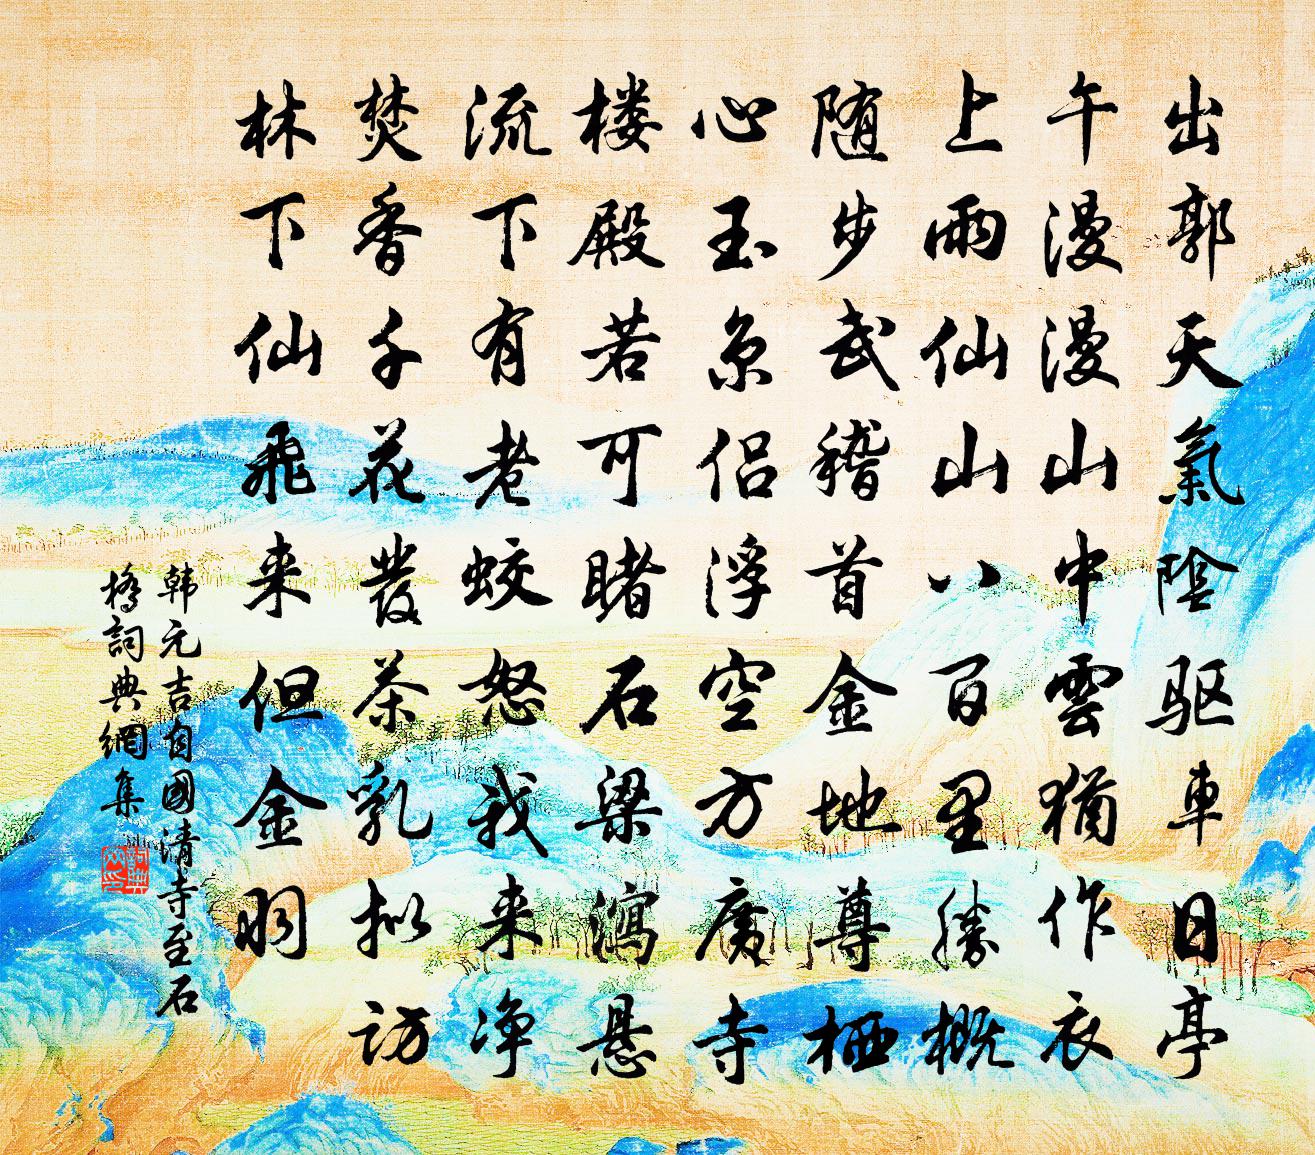 出郭天氣陰驱車日亭
午漫漫山中雲猶作衣
上雨仙山八百里勝概
随步武稽首金地尊栖
心玉京侣浮空方廣寺
楼殿若可睹石梁瀉悬
流下有老蛟怒我来净
焚香千花發茶乳拟访
林下仙飛来但金羽
韩元吉自國清寺至石
橋詞典網集